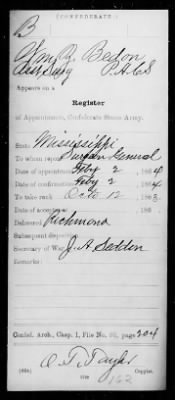 (CONFEDERATE.)
B
Wm. R. Bedon
Ass. Surg P.A.C.S
Appears on a
Register
of Appointments, Confederate States Army.
State Mississippi
To whom report Surgeon General
Date of appointment Feby 2, 1864
Date of confirmation Feby 2, 1864
To take rank Octo 12, 1863.
Date of acceptance , 186 .
Delivered Richmond
Subsequent disposition
Secretary of War J. A. Seddon
Remarks:
Confed. Arch., Chap. 1, File No. 86, page 204
O. T. Taylor
162